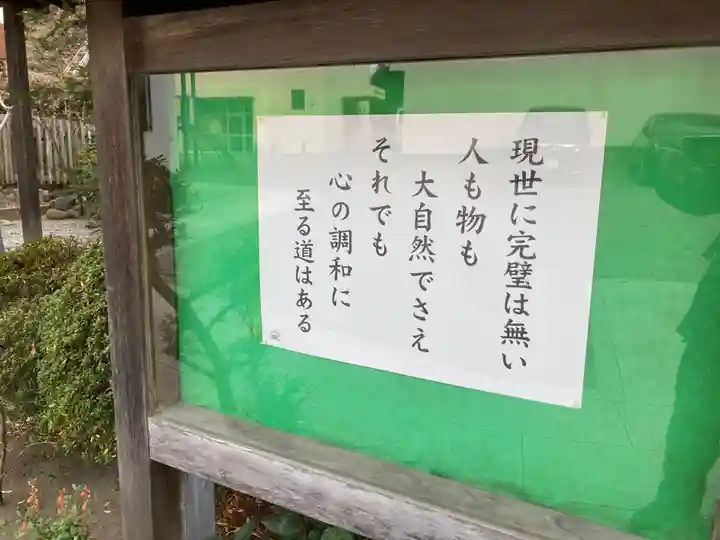 現世に完璧は無い
人も物も
大自然でさえ
それでも
心の調和に
至る道はある